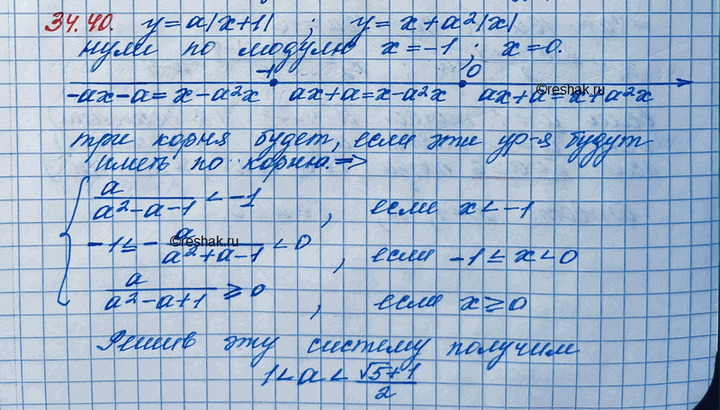 34.40. y=a|x+1| ; y=x+a²|x|
нули по модулю x=-1 ; x=0.
-1 0
-ax-a=x-a²x ax+a=x-a²x ax+a=x+a²x
©reshak.ru
три корня будет, если эти ур-я будут
иметь по корню. ⇒
{ a/(a²-a-1) < -1 , если x<-1
-1 ≤ - a/(a²+a-1) < 0 , если -1≤x<0
©reshak.ru
a/(a²-a+1) ≥ 0 , если x≥0
Решив эту систему получим
1<a<(√5+1)/2